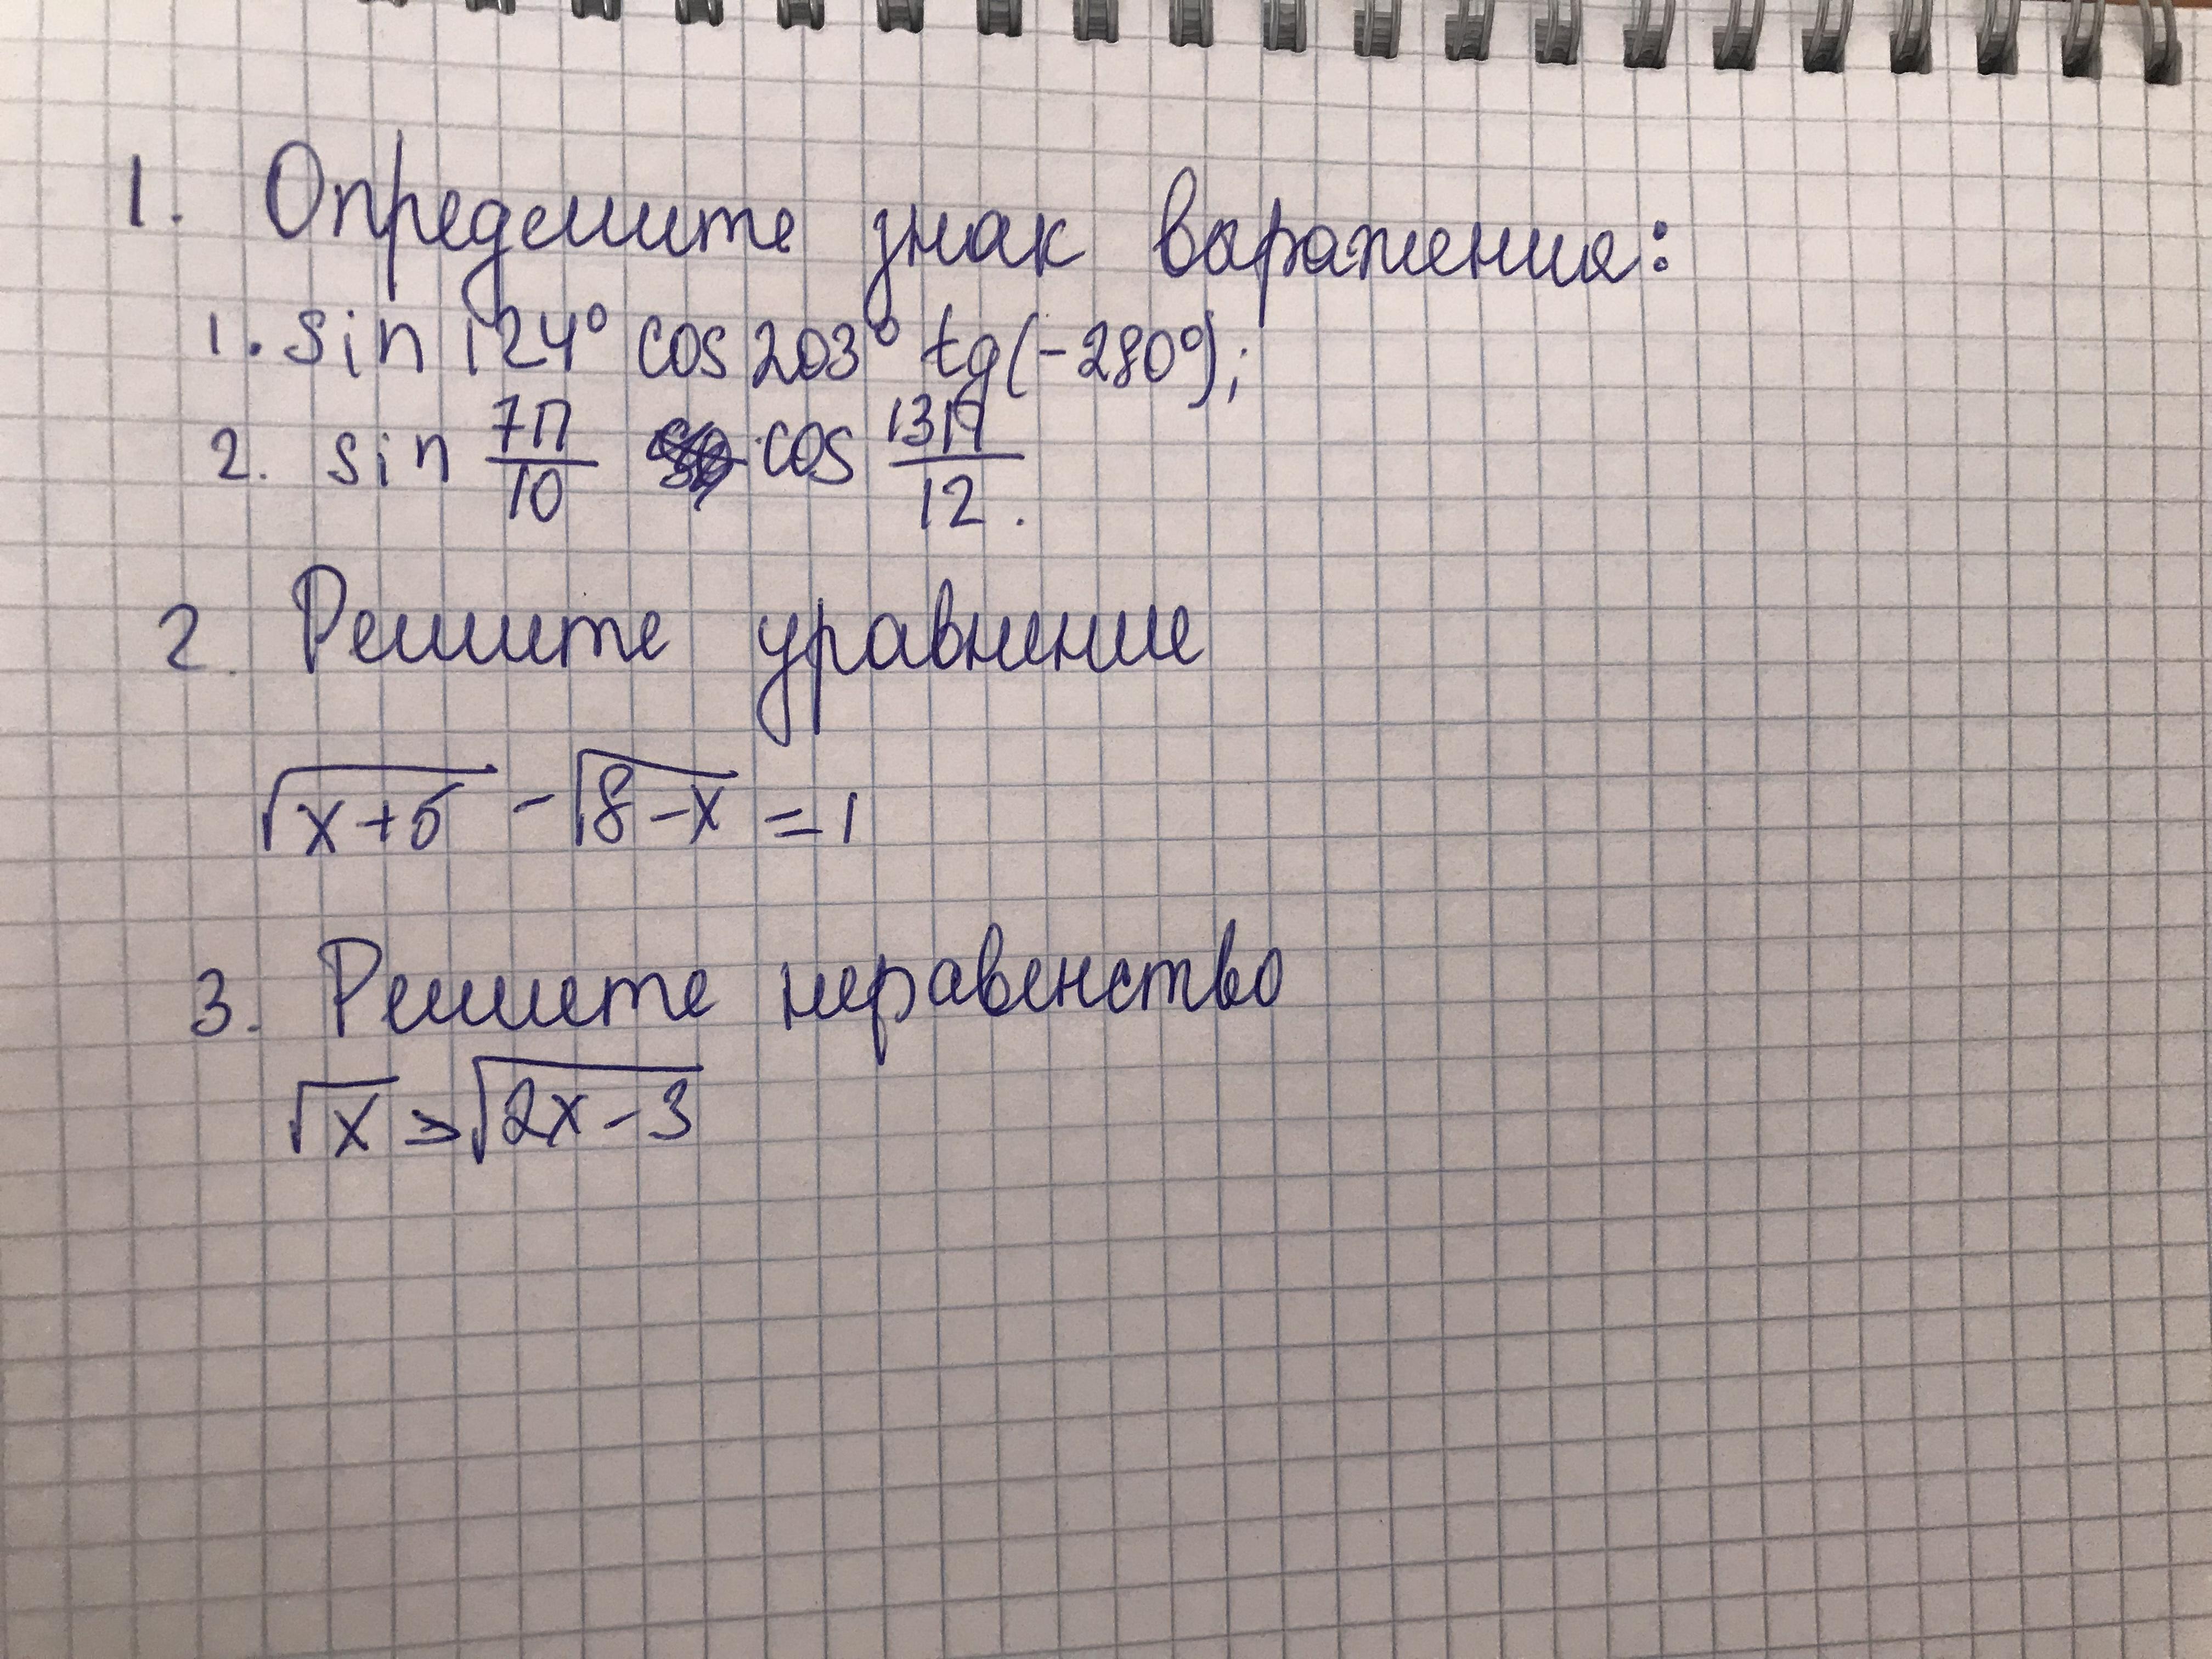 1. Определите знак выражения:
1. sin 124° cos 203° tg(-280°);
2. sin 7П/10 cos 13П/12.
2. Решите уравнение
√(x+5) - √(8-x) = 1
3. Решите неравенство
√x > √(2x-3)